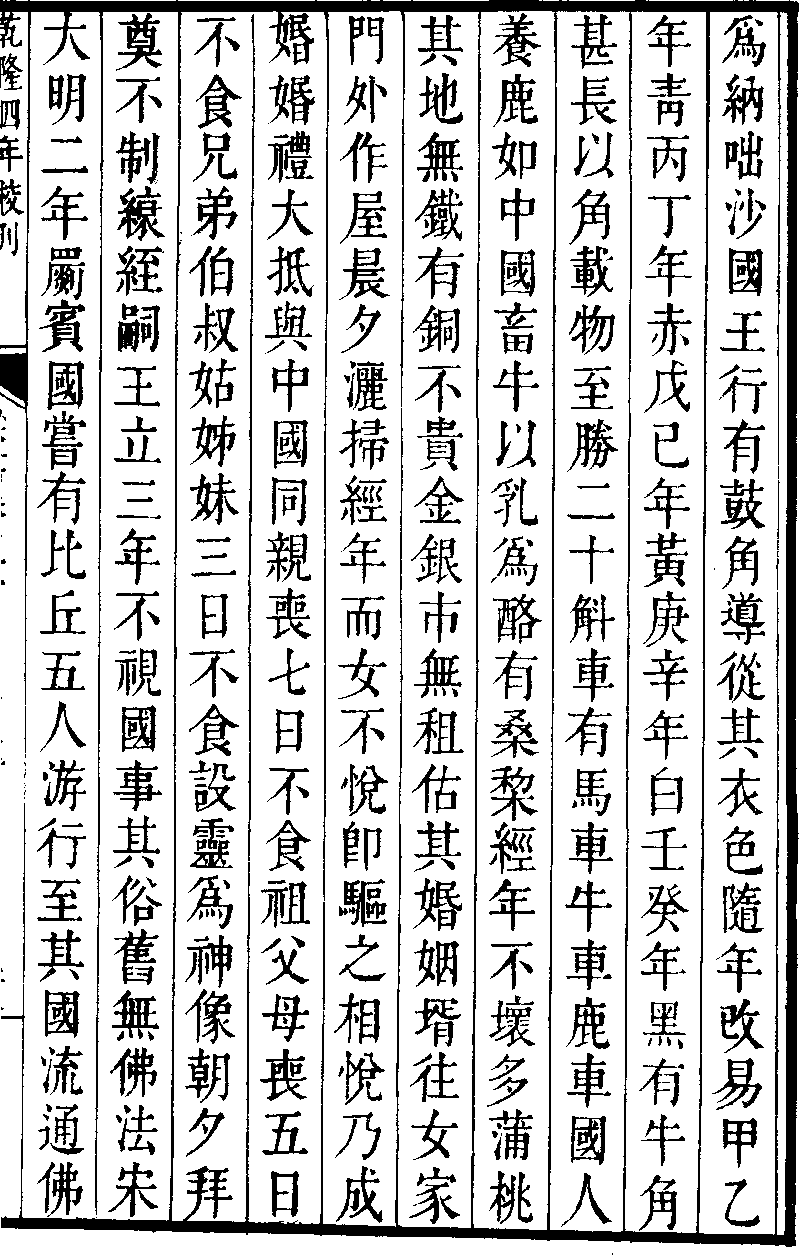 爲納咄沙國王行有鼓角導從其衣色隨年改易甲乙
年靑丙丁年赤戊己年黃庚辛年白壬癸年黑有牛角
甚長以角載物至勝二十斛車有馬車牛車鹿車國人
養鹿如中國畜牛以乳爲酪有桑棃經年不壞多蒲桃
其地無鐵有銅不貴金銀市無租估其婚姻壻往女家
門外作屋晨夕灑掃經年而女不悅卽驅之相悅乃成
婚婚禮大抵與中國同親喪七日不食祖父母喪五日
不食兄弟伯叔姑姊妹三日不食設靈爲神像朝夕拜
奠不制縗絰嗣王立三年不視國事其俗舊無佛法宋
大明二年罽賓國嘗有比丘五人游行至其國流通佛
乾隆四年校刊